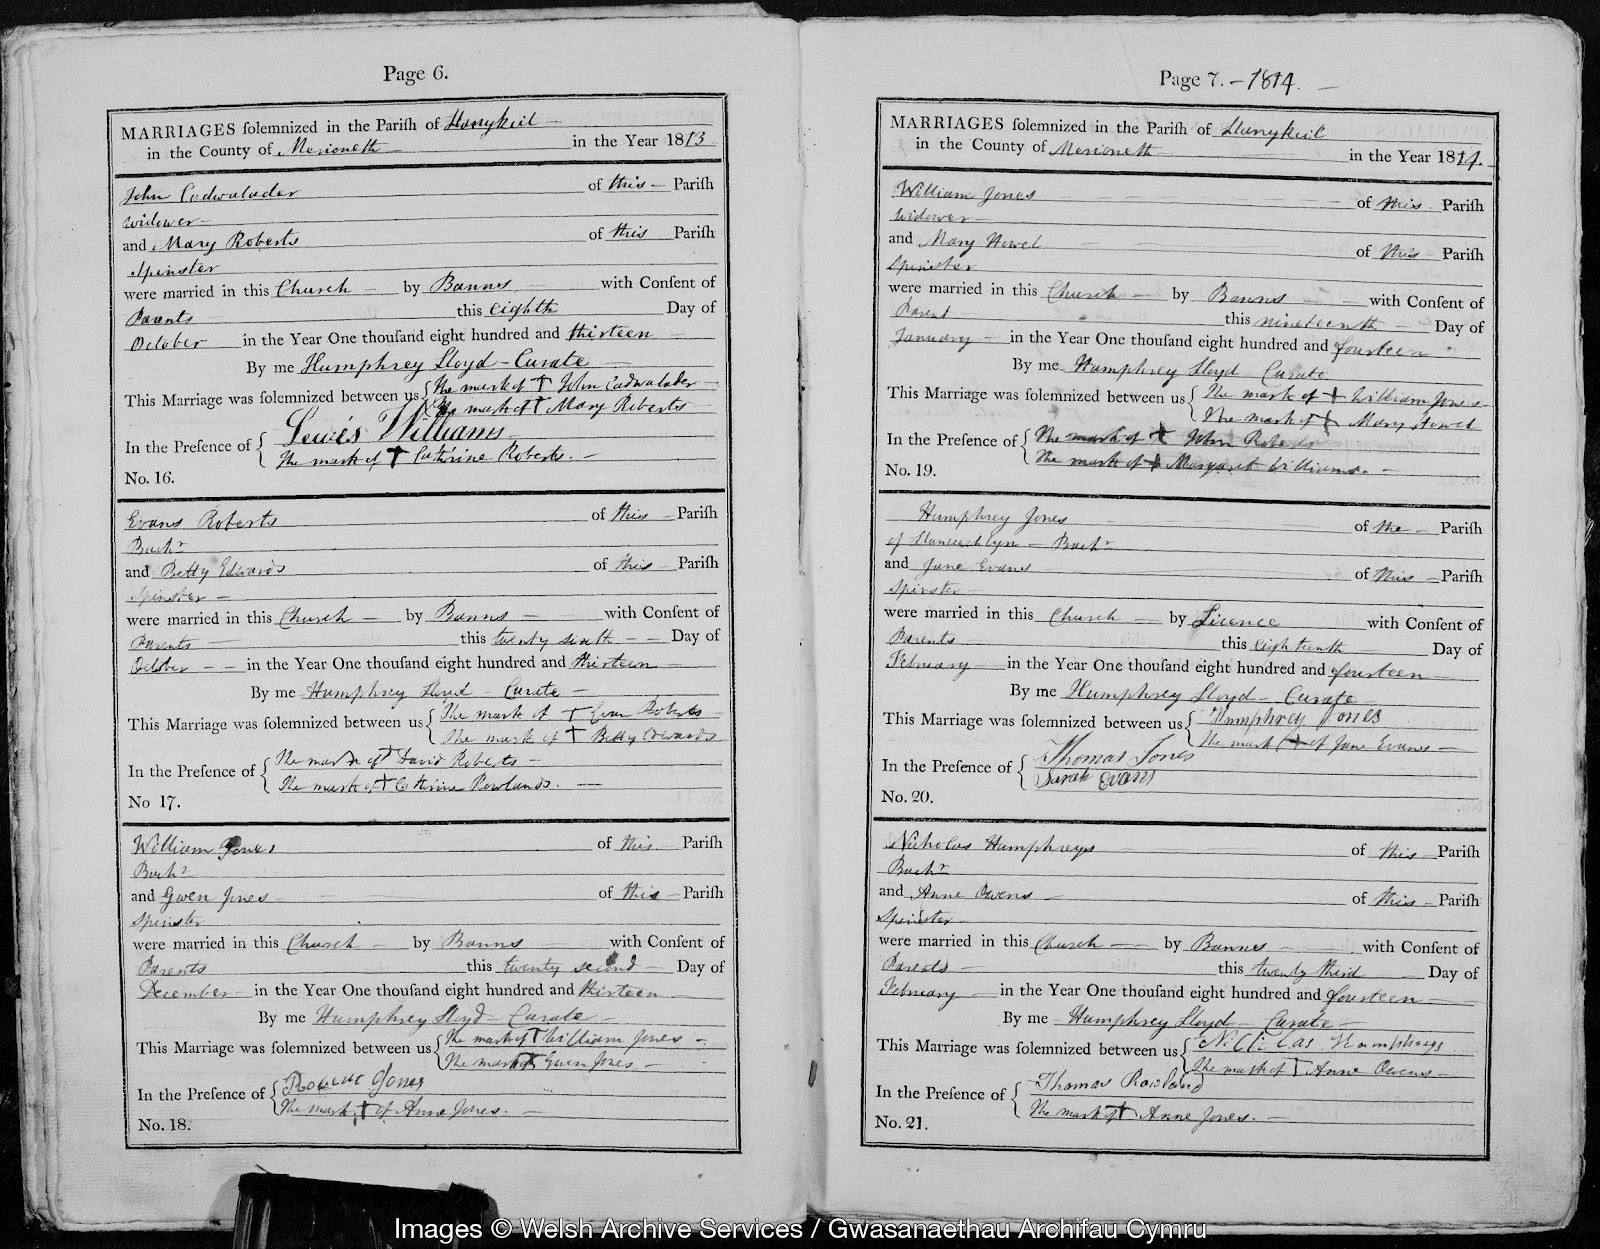 Page 6.
MARRIAGES ſolemnized in the Pariſh of Llanykeil
in the County of Merioneth in the Year 1813
John Cadwalader of this Pariſh
Widower
and Mary Roberts of this Pariſh
Spinster
were married in this Church by Banns with Conſent of
Parents this eighth Day of
October in the Year One thouſand eight hundred and thirteen
By me Humphrey Lloyd - Curate
This Marriage was ſolemnized between us { The mark of + John Cadwalader
The mark of + Mary Roberts
In the Preſence of { Lewis Williams
The mark of + Catherine Roberts.
No. 16.
Evans Roberts of this Pariſh
Bachr
and Betty Edwards of this Pariſh
Spinster
were married in this Church by Banns with Conſent of
Parents this twenty sixth Day of
October in the Year One thouſand eight hundred and thirteen
By me Humphrey Lloyd - Curate
This Marriage was ſolemnized between us { The mark of + Evan Roberts
The mark of + Betty Edwards
In the Preſence of { The mark of + David Roberts
The mark of + Cathrine Rowlands.
No 17.
William Jones of this Pariſh
Bachr
and Gwen Jones of this Pariſh
Spinster
were married in this Church by Banns with Conſent of
Parents this twenty second Day of
December in the Year One thouſand eight hundred and thirteen
By me Humphrey Lloyd - Curate
This Marriage was ſolemnized between us { The mark of + William Jones
The mark of + Gwen Jones
In the Preſence of { Jones
The mark + of Anne Jones.
No. 18.
Page 7. - 1814.
MARRIAGES ſolemnized in the Pariſh of Llanykeil
in the County of Merioneth in the Year 1814.
William Jones of this Pariſh
Widower
and Mary Howel of this Pariſh
Spinster
were married in this Church by Banns with Conſent of
Parent this nineteenth Day of
January in the Year One thouſand eight hundred and fourteen
By me Humphrey Lloyd Curate
This Marriage was ſolemnized between us { The mark of + William Jones
The mark of + Mary Howel
In the Preſence of { The mark of + John Roberts
The mark of + Margaret Williams.
No. 19.
Humphrey Jones of the Pariſh
of - Bachr
and Jane Evans of this Pariſh
Spinster
were married in this Church by Licence with Conſent of
Parents this eighteenth Day of
February in the Year One thouſand eight hundred and fourteen
By me Humphrey Lloyd - Curate
This Marriage was ſolemnized between us { Humphrey Jones
The mark + of Jane Evans
In the Preſence of { Thomas Jones
Sarah Evans
No. 20.
Nicholas Humphreys of this Pariſh
Bachr
and Anne Owens of this Pariſh
Spinster
were married in this Church by Banns with Conſent of
Parents this twenty third Day of
February in the Year One thouſand eight hundred and fourteen
By me Humphrey Lloyd - Curate
This Marriage was ſolemnized between us { Humphreys
The mark of + Anne Owens
In the Preſence of { Thomas Rowland
The mark of + Anne Jones.
No. 21.
Images © Welsh Archive Services / Gwasanaethau Archifau Cymru